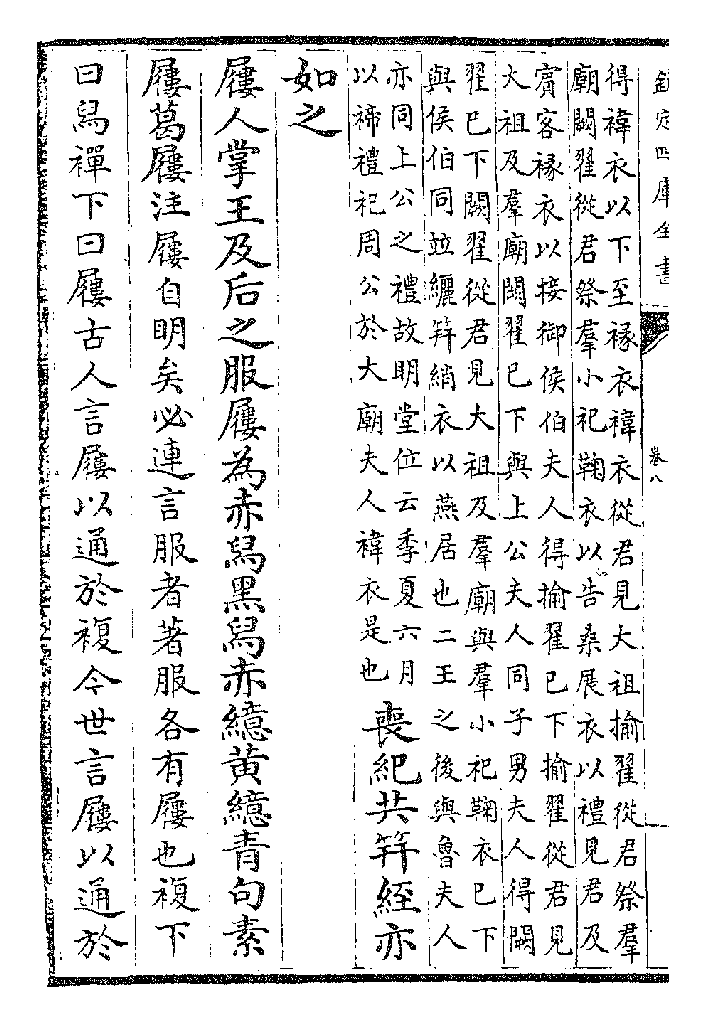 欽定四庫全書
卷八
得褘衣以下至褖衣褘衣從君見大祖揄翟從君祭羣
廟闕翟從君祭羣小祀鞠衣以告桑展衣以禮見君及
賓客褖衣以接御侯伯夫人得揄翟已下揄翟從君見
大祖及羣廟闕翟已下與上公夫人同子男夫人得闕
翟已下闕翟從君見大祖及羣廟與羣小祀鞠衣已下
與侯伯同並纚笄綃衣以燕居也二王之後與魯夫人
亦同上公之禮故明堂位云季夏六月
以禘禮祀周公於大廟夫人褘衣是也
喪紀共笄絰亦
如之
屨人掌王及后之服屨為赤舄黑舄赤繶黃繶青句素
屨葛屨注屨自明矣必連言服者著服各有屨也複下
曰舄襌下曰屨古人言屨以通於複今世言屨以通於